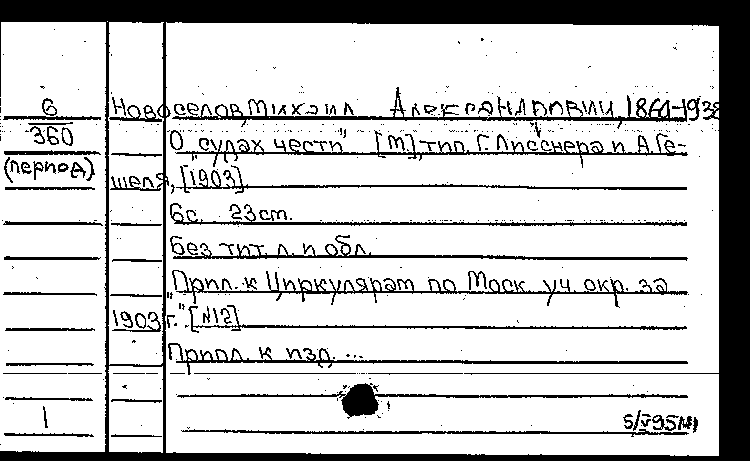 6 Новоселов, Михаил Александрович, 1864-1938
360 О "судах чести" [М], тип. Г. Лисснера и А. Ге-
(период) шеля, [1903]
6с. 23 cm.
Без тит. л. и обл.
"Прил. к Циркулярам по Моск. уч. окр. за
1903 г." [№12]
Припл. к изд. ...
1 5/V95